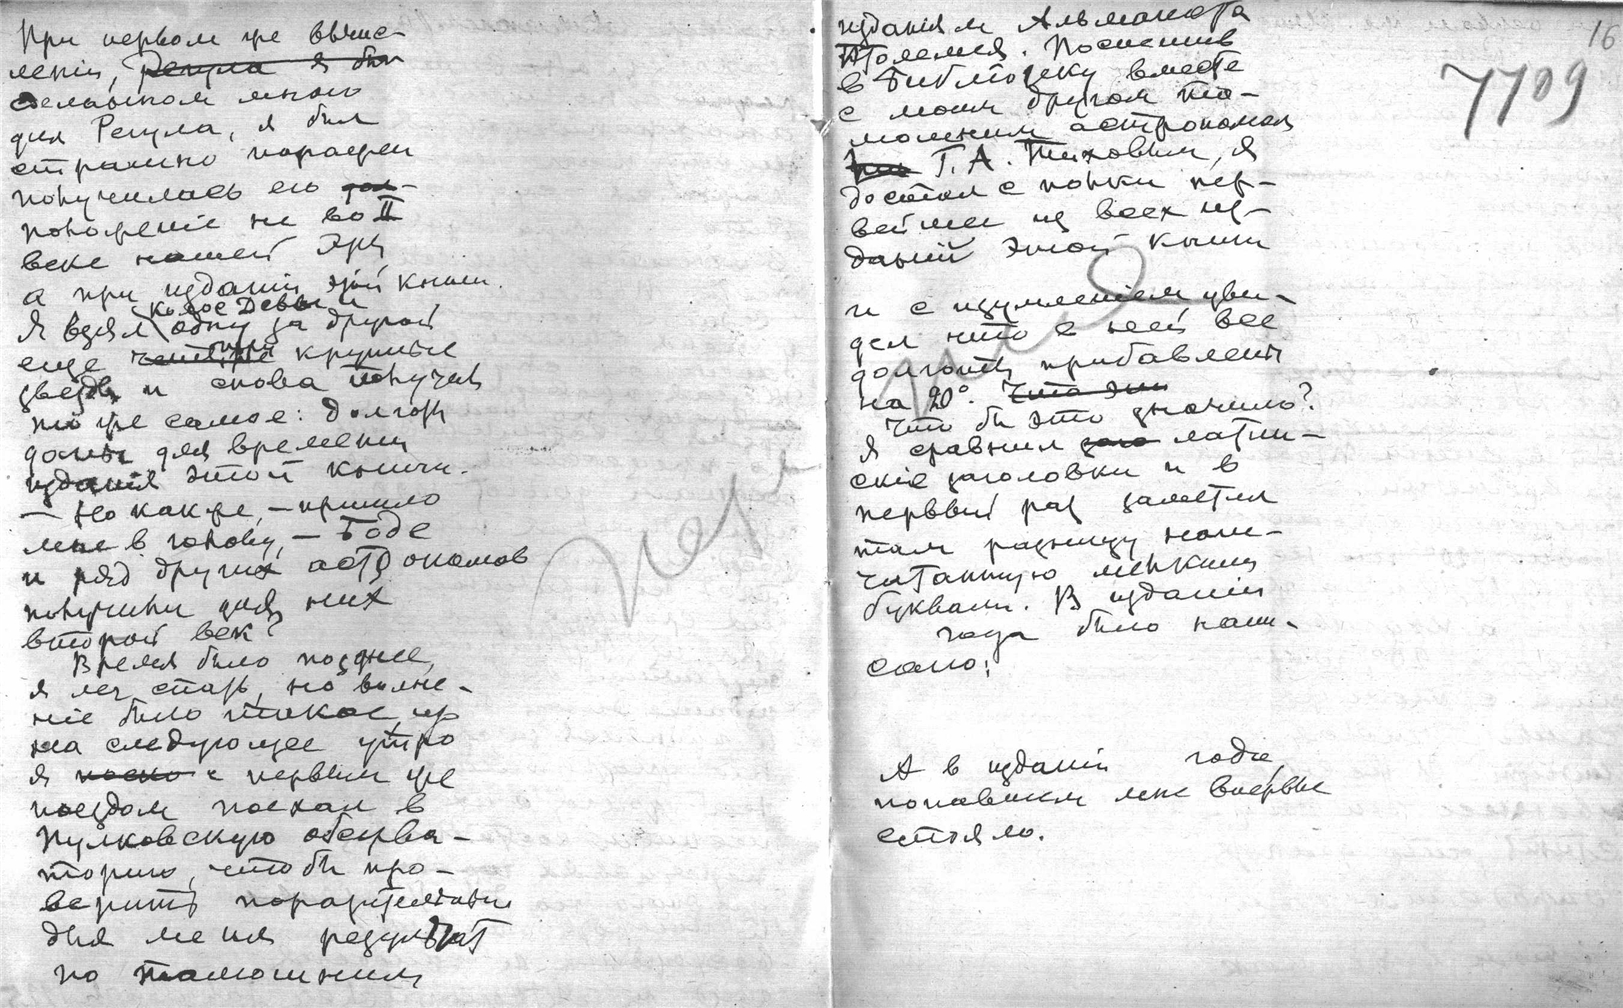 При первом же вычис-
лении, Регула я был
сделанном мною
для Регула, я был
страшно поражен
получилась его дол-
положеніе не во II
веке нашей эры
а при изданіи этой книги.
Колос Девы и
Я взял одну за другой
еще три крупные
звезды и снова получил
то же самое: долготы
даны для времени
изданія этой книги.
— Но как же, — пришло
мне в голову, — Боде
и ряд других астрономов
получили для них
второй век?
Время было позднее,
я лег спать, но волне-
ніе было такое, что
на следующее утро
я с первым же
поездом поехал в
Пулковскую обсерва-
торию, чтобы про-
верить поразительный
для меня результат
по тамошним
16
7709
изданіям Альмагеста
Птолемея. Поспешив
в библіотеку вместе
с моим другом та-
мошним астрономом
Г. А. Тиховым, я
достал с полки пер-
вейшее из всех из-
даний этой книги
и с изумленіем уви-
дел что в ней все
долготы прибавлены
на 20°. Что это
Что бы это значило?
Я сравнил латин-
скіе заголовки и в
первый раз заметил
там разницу напе-
чатанную мелкими
буквами. В изданіи
года было напи-
сано:
А в изданіи года,
попавшем мне впервые
стояло.